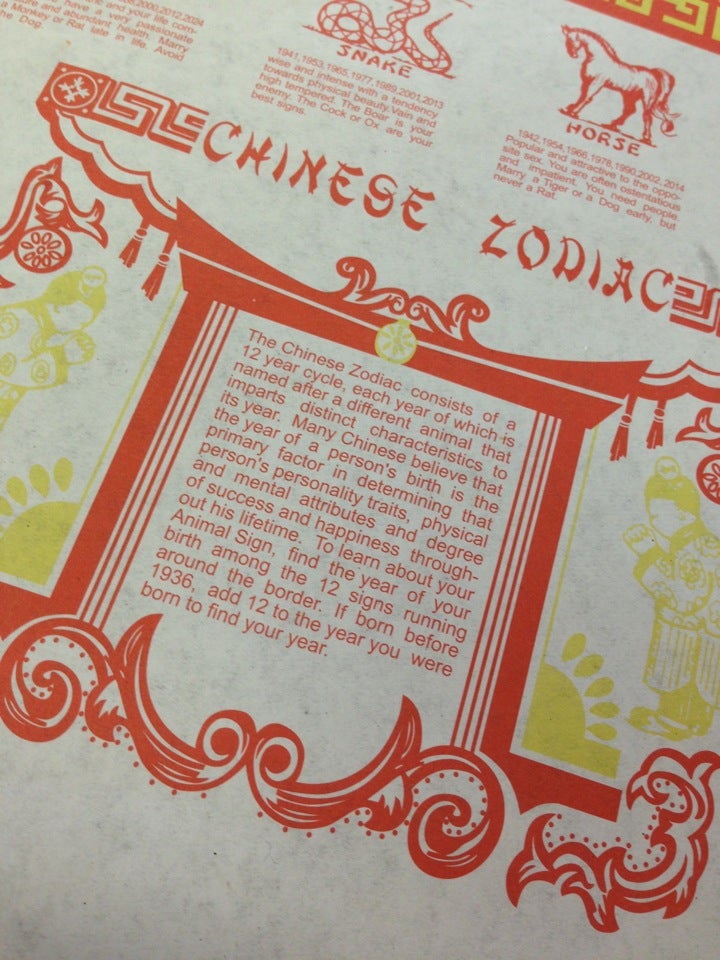 2000,2012,2024
and your life com-
have a very passionate
and abundant health. Marry
a Monkey or Rat late in life. Avoid
the Dog.
SNAKE
1941,1953,1965,1977,1989,2001,2013
wise and intense with a tendency
towards physical beauty. Vain and
high tempered. The Boar is your
enemy. The Cock or Ox are your
best signs.
HORSE
1942,1954,1966,1978,1990,2002,2014
Popular and attractive to the oppo-
site sex. You are often ostentatious
and impatient. You need people.
Marry a Tiger or a Dog early, but
never a Rat.
CHINESE ZODIAC
The Chinese Zodiac consists of a
12 year cycle, each year of which is
named after a different animal that
imparts distinct characteristics to
its year. Many Chinese believe that
the year of a person's birth is the
primary factor in determining that
person's personality traits, physical
and mental attributes and degree
of success and happiness through-
out his lifetime. To learn about your
Animal Sign, find the year of your
birth among the 12 signs running
around the border. If born before
1936, add 12 to the year you were
born to find your year.